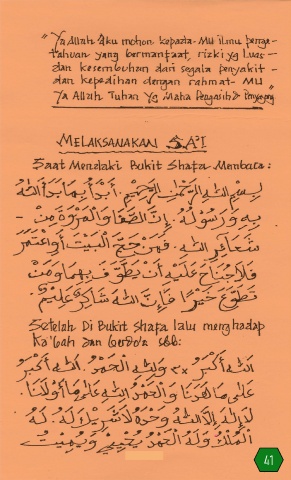 "Ya Allah Aku mohon kepada-MU ilmu penge-
tahuan yang bermanfaat, rizki yg luas
dan kesembuhan dari segala penyakit -
dan kepedihan dengan rahmat-MU
Ya Allah Tuhan Yg Maha Pengasih
MELAKSANAKAN SA'I
Saat Mendaki Bukit Shafa Membaca:
بِسْمِ اللهِ الرَّحْمٰنِ الرَّحِيْمِ. أَبْدَأُ بِمَا بَدَأَ اللهُ
بِهِ وَرَسُوْلُهُ. إِنَّ الصَّفَا وَالْمَرْوَةَ مِنْ -
شَعَائِرِ اللهِ. فَمَنْ حَجَّ الْبَيْتَ أَوِاعْتَمَرَ
فَلَاجُنَاحَ عَلَيْهِ أَنْ يَطَّوَّفَ بِهِمَا وَمَنْ
تَطَوَّعَ خَيْرًا فَإِنَّ اللهَ شَاكِرٌ عَلِيْمٌ.
Setelah Di Bukit Shafa lalu menghadap
Ka'bah dan berdo'a sbb:
اللهُ أَكْبَرُ ×٣ وَلِلّٰهِ الْحَمْدُ. اللهُ أَكْبَرُ
عَلَى مَا هَدَانَا وَالْحَمْدُ لِلّٰهِ عَلَى مَا أَوْلَانَا.
لَاإِلٰهَ إِلَّا اللهُ وَحْدَهُ لَاشَرِيْكَ لَهُ. لَهُ
الْمُلْكُ وَلَهُ الْحَمْدُ يُحْيِيْ وَيُمِيْتُ
41